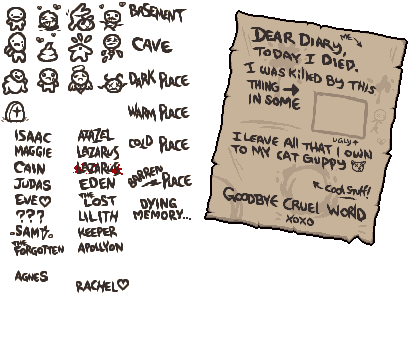 BASEMENT
CAVE
DARK PLACE
WARM PLACE
COLD PLACE
BARREN PLACE
DYING
MEMORY...
ISAAC
MAGGIE
CAIN
JUDAS
EVE♡
???
SAMS
THE
FORGOTTEN
AGNES
AZAZEL
LAZARUS
LAZARUS
EDEN
THE
LOST
LILITH
KEEPER
APOLLYON
RACHEL♡
DEAR DIARY,
ME
TODAY I DIED.
I WAS KILLED BY THIS
THING →
IN SOME
UGLY
I LEAVE ALL THAT I OWN
TO MY CAT GUPPY
COOL STUFF!
GOODBYE CRUEL WORLD
XOXO